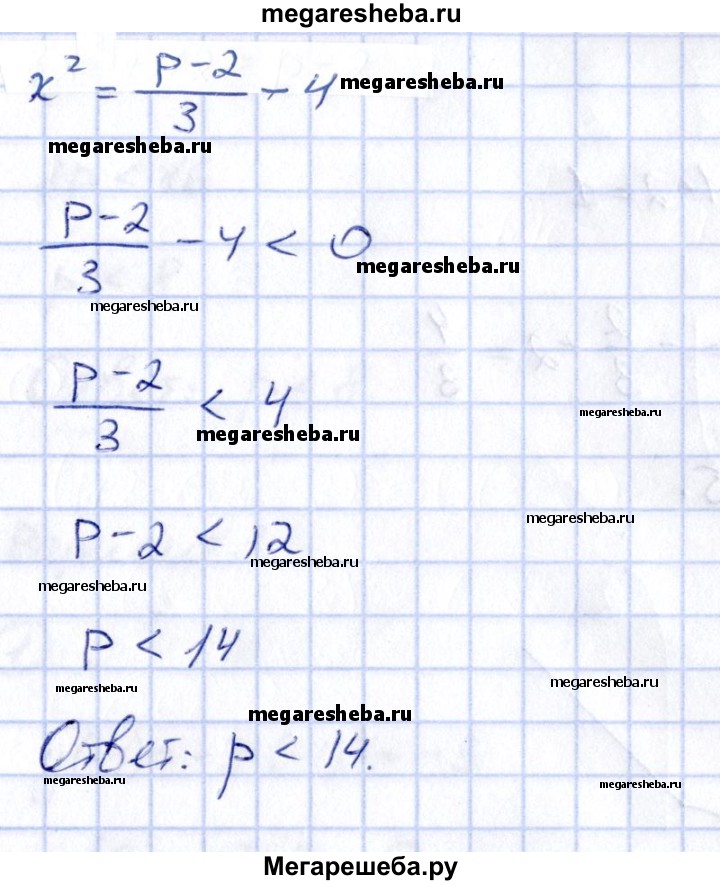 megaresheba.ru
x² = (p-2)/3 - 4 megaresheba.ru
megaresheba.ru
(p-2)/3 - 4 < 0
megaresheba.ru
megaresheba.ru
(p-2)/3 < 4
megaresheba.ru
megaresheba.ru
megaresheba.ru
p-2 < 12
megaresheba.ru
megaresheba.ru
p < 14
megaresheba.ru
megaresheba.ru
megaresheba.ru
Ответ: p < 14.
megaresheba.ru
megaresheba.ru
Мегарешеба.ру